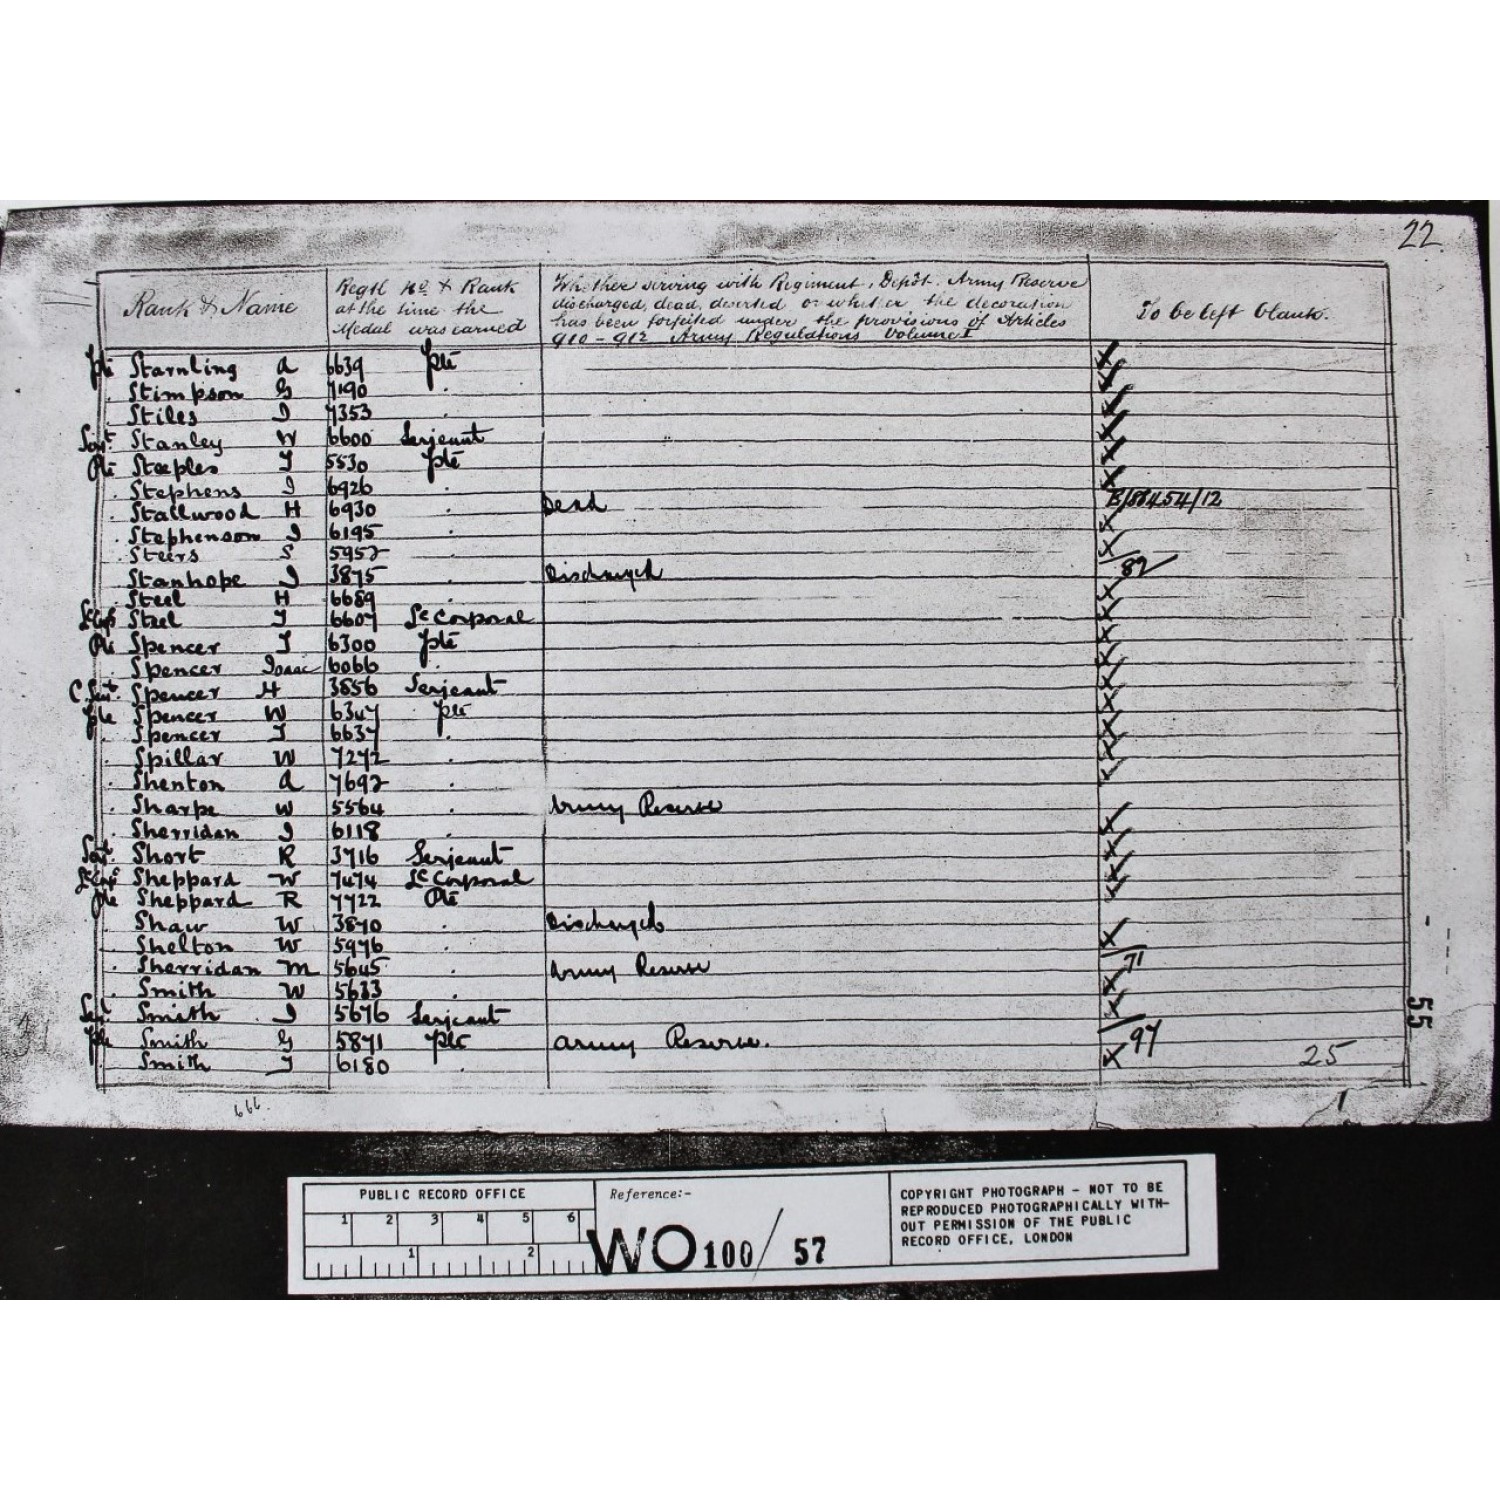 22
Rank & Name
Regtl No. & Rank
at the time the
Medal was earned
Whether serving with Regiment, Depôt, Army Reserve
discharged, dead, deserted or whether the decoration
has been forfeited under the provisions of Articles
910 - 912 Army Regulations Volume I
To be left blank.
Pte Starnling A 6639 Pte
. Stimpson G 7190 .
. Stiles J 7353 .
Serjt Stanley W 6600 Serjeant
Pte Steeples T 5530 Pte
. Stephens J 6926 .
. Stallwood H 6930 . Dead B/86454/12
. Stephenson J 6195 .
. Steers S 5952 .
Stanhope J 3875 . Discharged 82
. Steel H 6689 .
Lc Corpl Steel T 6607 Lc Corporal
Pte Spencer T 6300 Pte
. Spencer Isaac 6066 .
C. Serjt. Spencer H 3856 Serjeant
Pte Spencer W 6347 Pte
. Spencer T 6637 .
. Spillar W 7272 .
. Shenton A 7692 .
. Sharpe W 5564 . Army Reserve
. Sherridan J 6118 .
Serjt. Short R 3716 Serjeant
Lc Corpl Sheppard W 7474 Lc Corporal
Pte Sheppard R 7722 Pte
. Shaw W 3870 . Discharged
. Shelton W 5976 .
. Sherridan M 5645 . Army Reserve 71
. Smith W 5633 .
Serjt Smith J 5676 Serjeant
Pte Smith G 5871 Pte Army Reserve. 97
. Smith T 6180 . 25
55
666.
PUBLIC RECORD OFFICE
1 2 3 4 5 6
1 2
Reference:-
WO 100/57
COPYRIGHT PHOTOGRAPH - NOT TO BE
REPRODUCED PHOTOGRAPHICALLY WITH-
OUT PERMISSION OF THE PUBLIC
RECORD OFFICE, LONDON